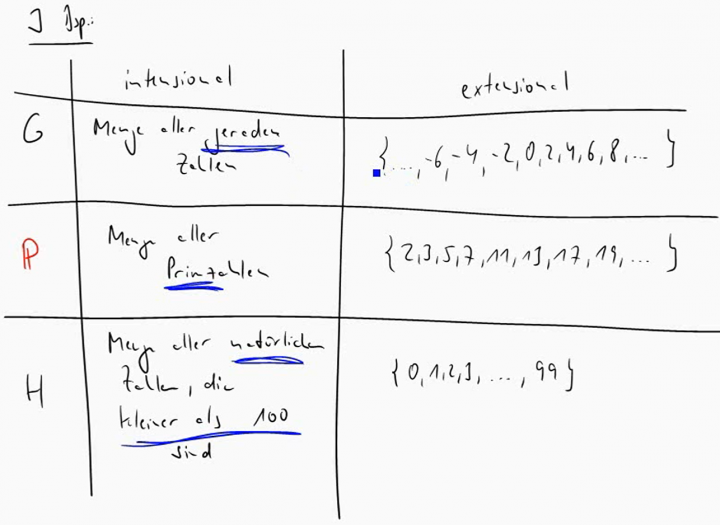 3 Bsp.:
intensional
extensional
G
Menge aller geraden
Zahlen
{ ..., -6, -4, -2, 0, 2, 4, 6, 8, ... }
P
Menge aller
Primzahlen
{2, 3, 5, 7, 11, 13, 17, 19, ... }
H
Menge aller natürlichen
Zahlen, die
kleiner als 100
sind
{0, 1, 2, 3, ..., 99}